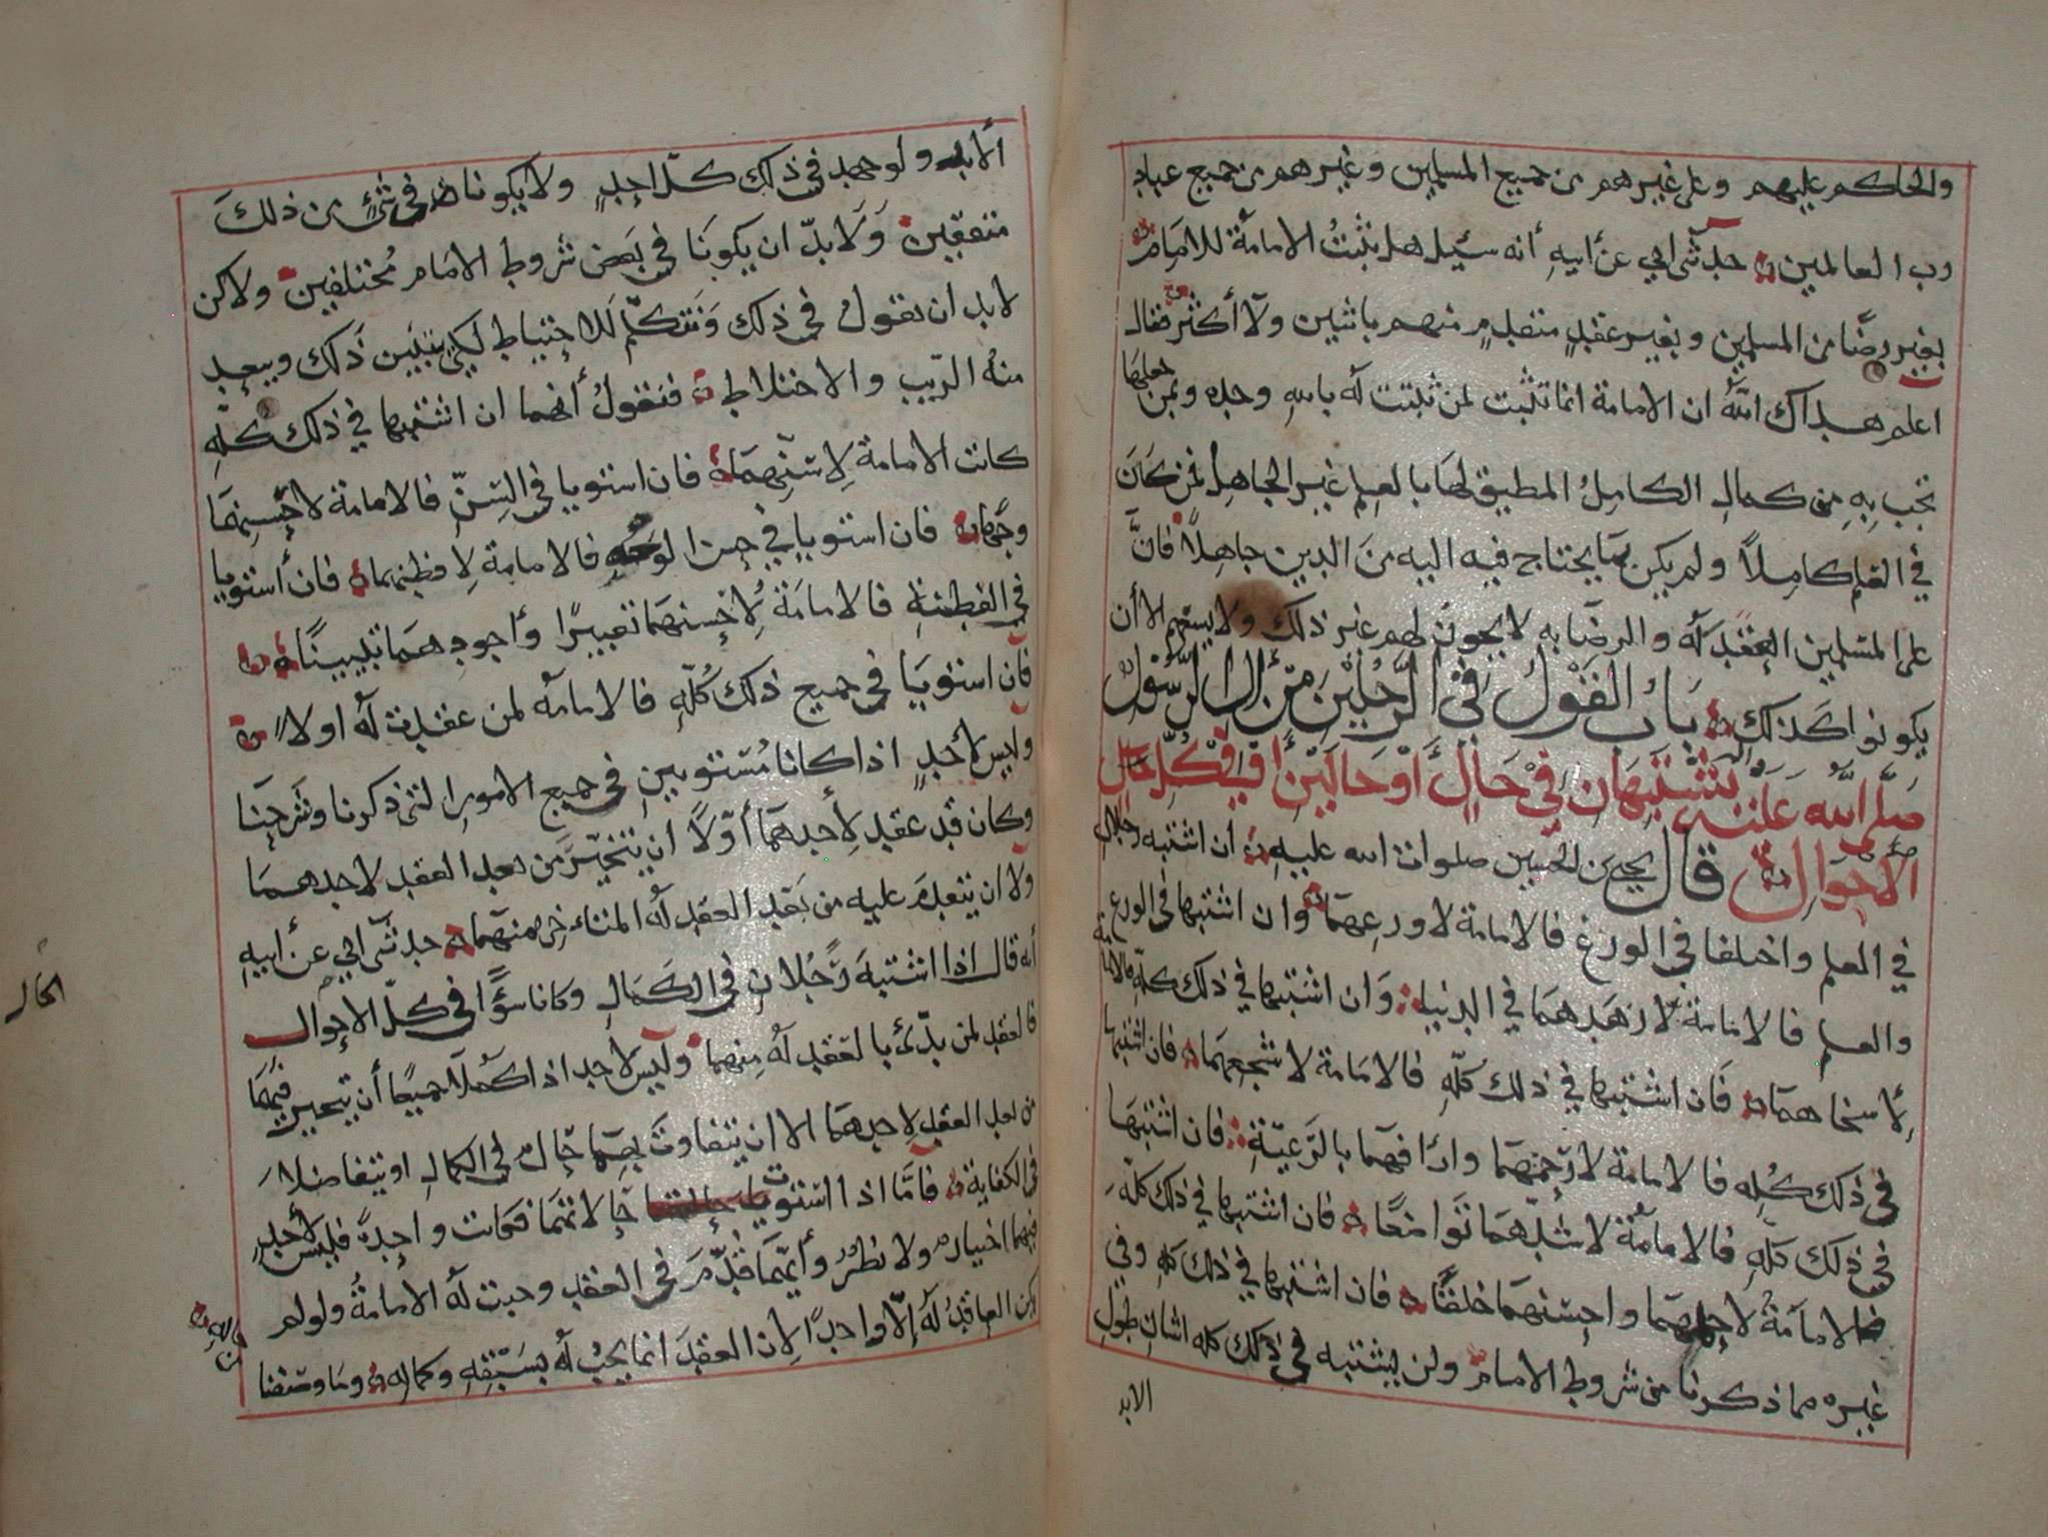 والحاكم عليهم وعلى غيرهم من جميع المسلمين وغيرهم من جميع عباد
رب العالمين حدثني ابي عن أبيه أنه سئيل هل تثبت الامامة للامام
بغير رضا من المسلمين وبغير عقد متقدم منهم باثنين ولا أكثر فقال
اعلم هداك الله ان الامامة انما تثبت لمن تثبت له بالله وحده وبمن جعلها
تجب به من كمال الكامل المطيق لها بالعلم غير الجاهل فمن كان
في العلم كاملا ولم يكن بما يحتاج فيه اليه من الدين جاهلا فان
على المسلمين العقد له والرضا به لا يجوز لهم غير ذلك ولا يسعهم الا أن
يكونوا كذلك باب القول في الرجلين من آل الرسول
صلى الله عليه وآله يشتبهان في حال أو حالين أو في كل حال
الأحوال قال يحيى بن الحسين صلوات الله عليه ان اشتبه رجلان
في العلم واختلفا في الورع فالامامة لاورعهما وان اشتبها في الورع
والعلم فالامامة لازهدهما في الدنيا وان اشتبها في ذلك كله فالامامة
لأسخاهما فان اشتبها في ذلك كله فالامامة لاشجعهما فان اشتبها
في ذلك كله فالامامة لارحمهما وارأفهما بالرعية فان اشتبها
في ذلك كله فالامامة لاشدهما تواضعا فان اشتبها في ذلك كله
فالامامة لاحلمهما واحسنهما خلقا فان اشتبها في ذلك كله وفي
غيره مما ذكرنا من شروط الامام ولن يشتبه في ذلك كله اثنان طول
الابد
ألابد ولو جهد في ذلك كل احد ولا يكونان في شئ من ذلك
متفقين ولا بد ان يكونا في بعض شروط الامام مختلفين ولاكن
لابد ان نقول في ذلك ونتكلم للاحتياط لكي يتبين ذلك ويبعد
منه الريب والاختلاط فنقول أنهما ان اشتبها في ذلك كله
كانت الامامة لاسنهما فان استويا في السن فالامامة لاحسنهما
وجها فان استويا في حسن الوجه فالامامة لافطنهما فان أستويا
في الفطنة فالامامة لاحسنهما تعبيرا وأجودهما تبيينا
فان استويا في جميع ذلك كله فالامامه لمن عقدت له اولا
وليس لأحد اذا كانا مستويين في جميع الامور التي ذكرنا وشرحنا
وكان قد عقد لأحدهما أولا ان يتخير من بعد العقد لاحدهما
ولا ان يتقدم عليه من بعد العقد له المتاخر منهما حدثني ابي عن أبيه
أنه قال اذا اشتبه رجلان في الكمال وكانا سوا في كل الاحوال
فالعقد لمن بدئ بالعقد له منهما وليس لاحد اذا كملا جميعا أن يتحير فيهما
من بعد العقد لاحدهما الا ان يتفاوت بهما حال في الكمال او يتفاضلا
في الكفاية فأما اذا استوت حالاتهما فكانت واحدة فليس لأحد
فيهما اختيار ولا نظر وأيهما قدم في العقد وجبت له الامامة ولو لم
يكن العاقد له إلا واحدا لان العقد انما يجب له بسبقه وكماله وما وصفنا
الحال